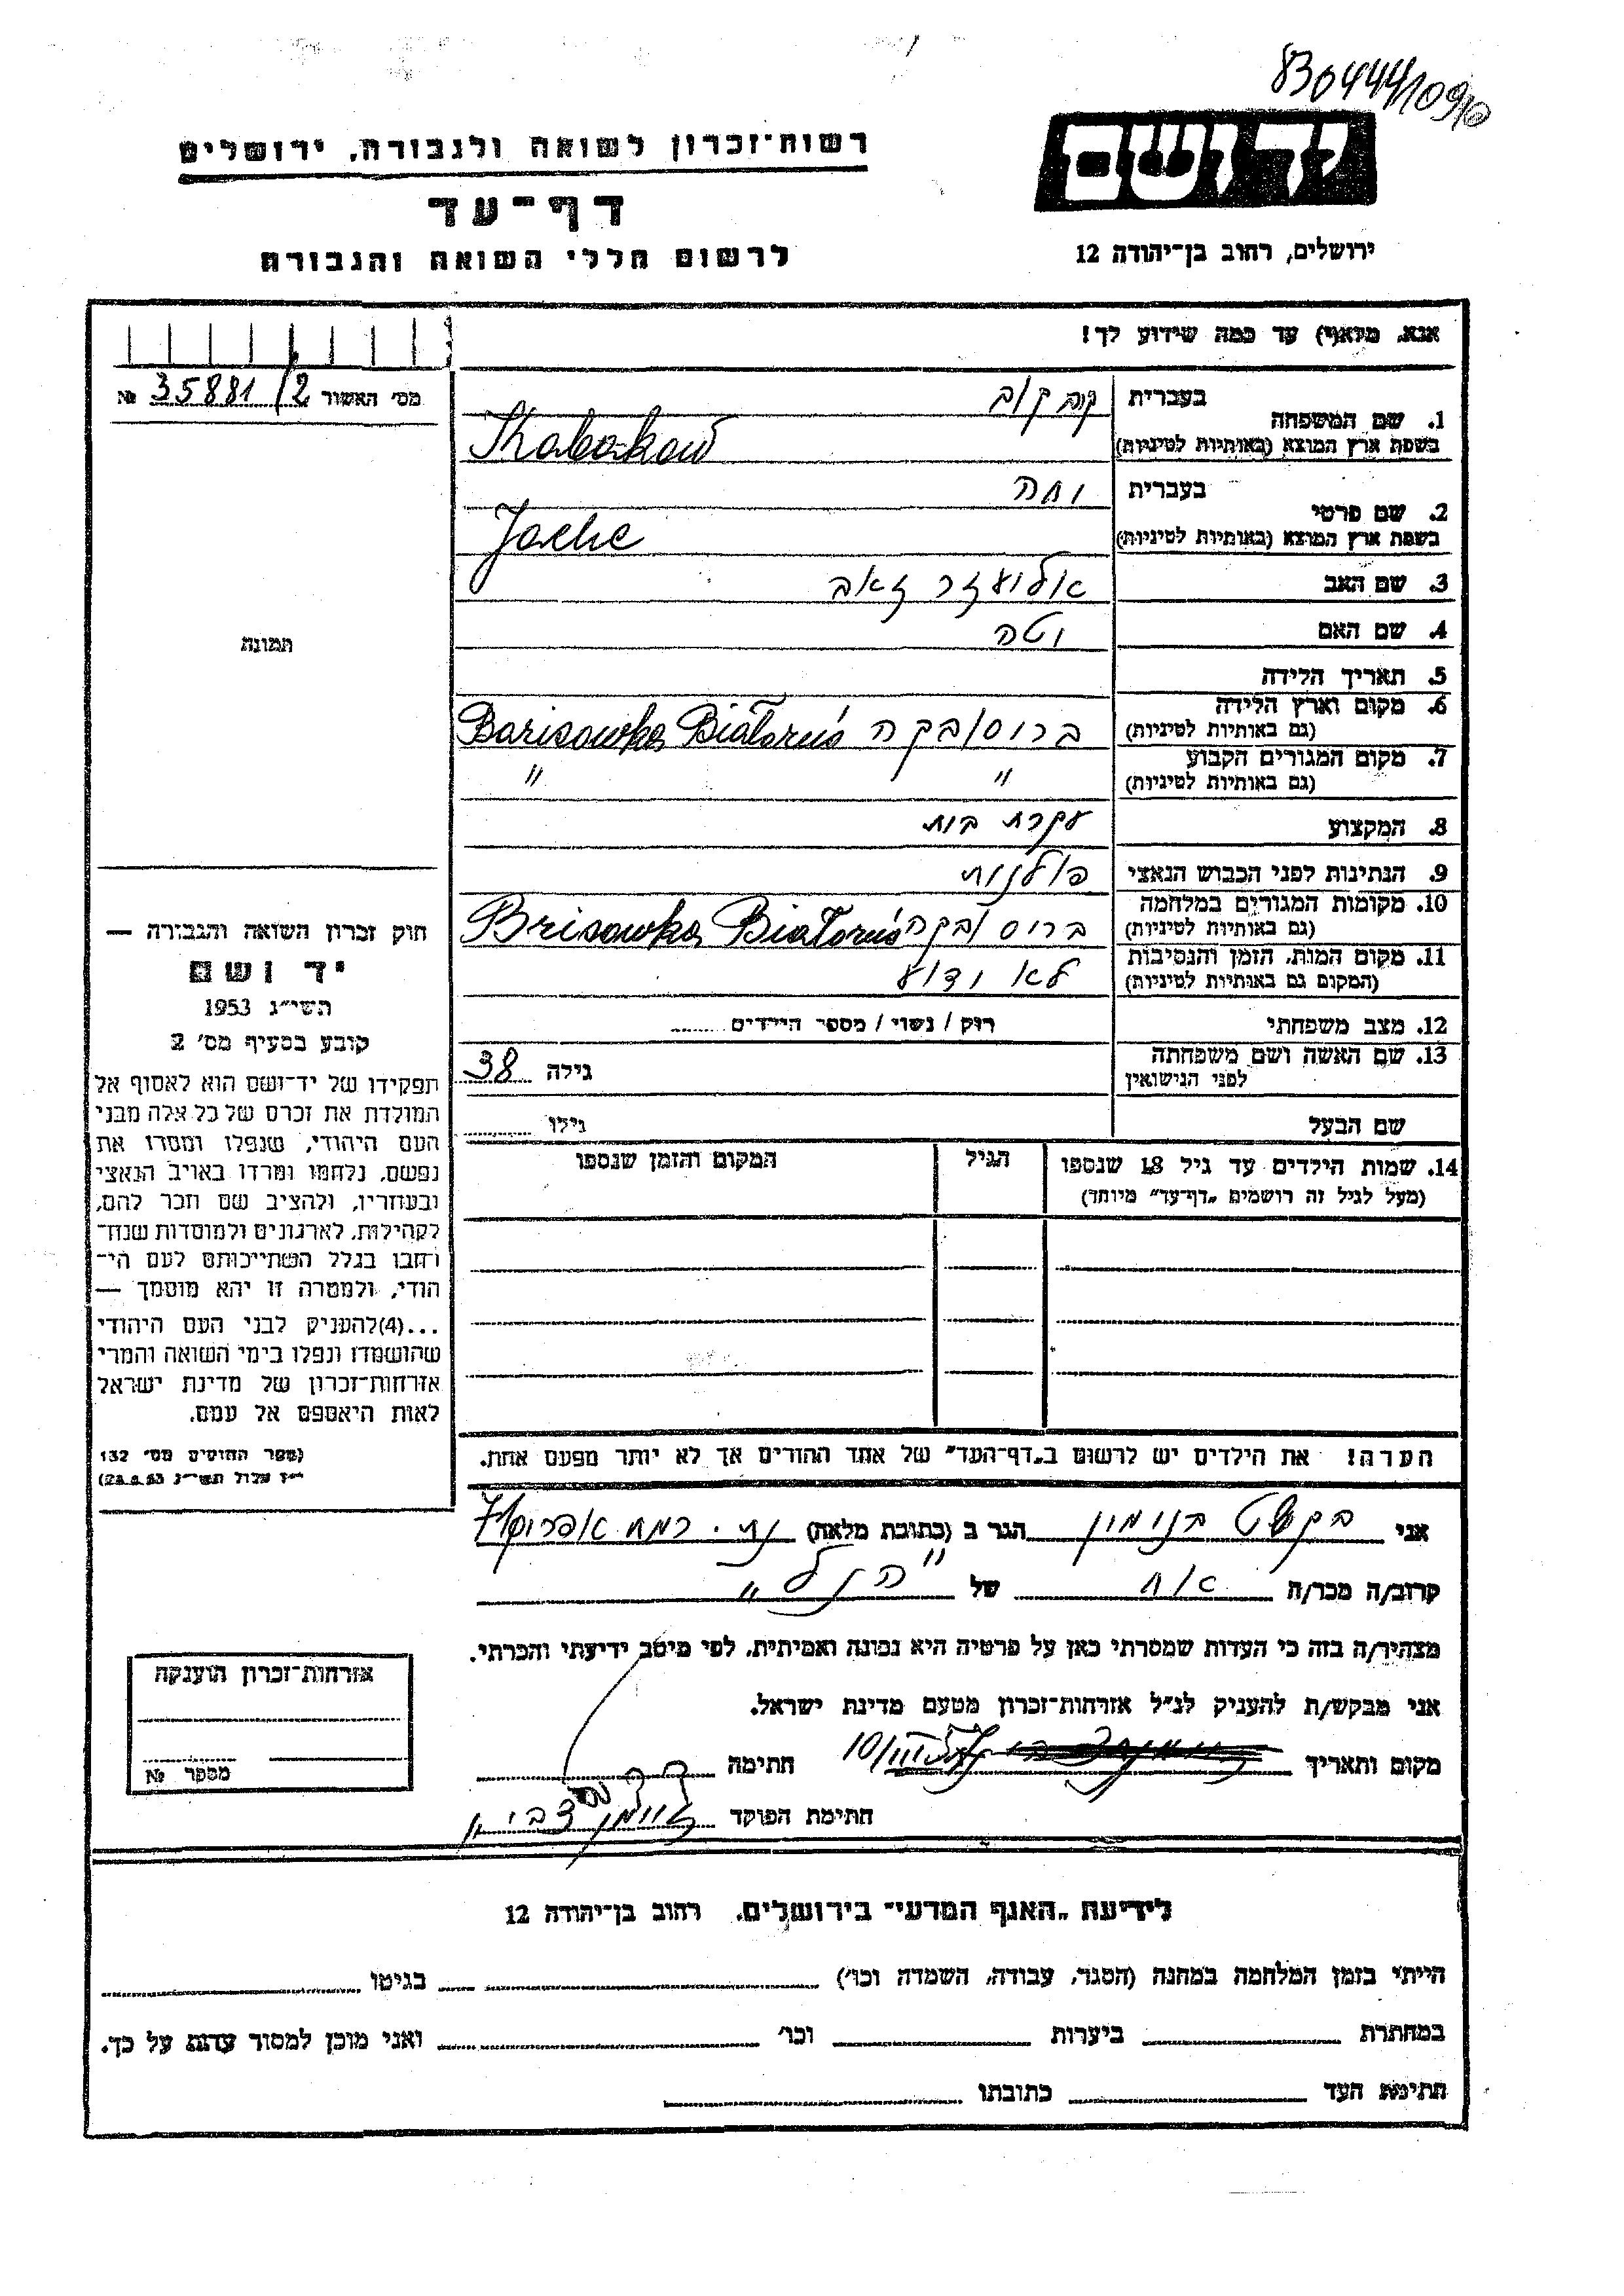 830444/109
רשות־זכרון לשואה ולגבורה, ירושלים
יד ושם
דף־עד
לרשום חללי השואה והגבורה
ירושלים, רחוב בן־יהודה 12
אנא, מלא(י) עד כמה שידוע לך!
מס׳ האשור № 35881/2
1. שם המשפחה בעברית
בשפת ארץ המוצא (באותיות לטיניות) Kabakow
2. שם פרטי בעברית יחה
בשפת ארץ המוצא (באותיות לטיניות) Jache
3. שם האב אליעזר זאב
4. שם האם יטה
5. תאריך הלידה
6. מקום וארץ הלידה (גם באותיות לטיניות) בריסובקה Barisowka Białoruś
7. מקום המגורים הקבוע (גם באותיות לטיניות) " "
8. המקצוע עקרת בית
9. הנתינות לפני הכבוש הנאצי פולנית
10. מקומות המגורים במלחמה (גם באותיות לטיניות) בריסובקה Brisowka Białoruś
11. מקום המות, הזמן והנסיבות (המקום גם באותיות לטיניות) לא ידוע
12. מצב משפחתי רווק / נשוי / מספר הילדים
13. שם האשה ושם משפחתה לפני הנישואין גילה 38
שם הבעל גילו
14. שמות הילדים עד גיל 18 שנספו (מעל לגיל זה רושמים „דף־עד״ מיוחד) הגיל המקום והזמן שנספו
תמונה
חוק זכרון השואה והגבורה —
יד ושם
תשי״ג 1953
קובע בסעיף מס׳ 2
תפקידו של יד־ושם הוא לאסוף אל
המולדת את זכרם של כל אלה מבני
העם היהודי, שנפלו ומסרו את
נפשם, נלחמו ומרדו באויב הנאצי
ובעוזריו, ולהציב שם וזכר להם,
לקהילות, לארגונים ולמוסדות שנח־
רבו בגלל השתייכותם לעם הי־
הודי, ולמטרה זו יהא מוסמך —
...(4)להעניק לבני העם היהודי
שהושמדו ונפלו בימי השואה והמרי
אזרחות־זכרון של מדינת ישראל
לאות היאספם אל עמם.
(ספר החוקים מס׳ 132
י״ז אלול תשי״ג 28.8.53)
הערה! את הילדים יש לרשום ב„דף־העד״ של אחד ההורים אך לא יותר מפעם אחת.
אני בנימין הגר ב (כתובת מלאה)
קרוב/ה מכר/ה אח של „הנ״ל״
מצהיר/ה בזה כי העדות שמסרתי כאן על פרטיה היא נכונה ואמיתית, לפי מיטב ידיעתי והכרתי.
אני מבקש/ת להעניק לנ״ל אזרחות־זכרון מטעם מדינת ישראל.
מקום ותאריך חתימה
חתימת הפוקד
אזרחות־זכרון הוענקה
מספר №
לידיעת „האגף המדעי״ בירושלים, רחוב בן־יהודה 12
הייתי בזמן המלחמה במחנה (הסגר, עבודה, השמדה וכו׳) בגיטו
במחתרת ביערות וכו׳ ואני מוכן למסור עדות על כך.
חתימת העד כתובתו